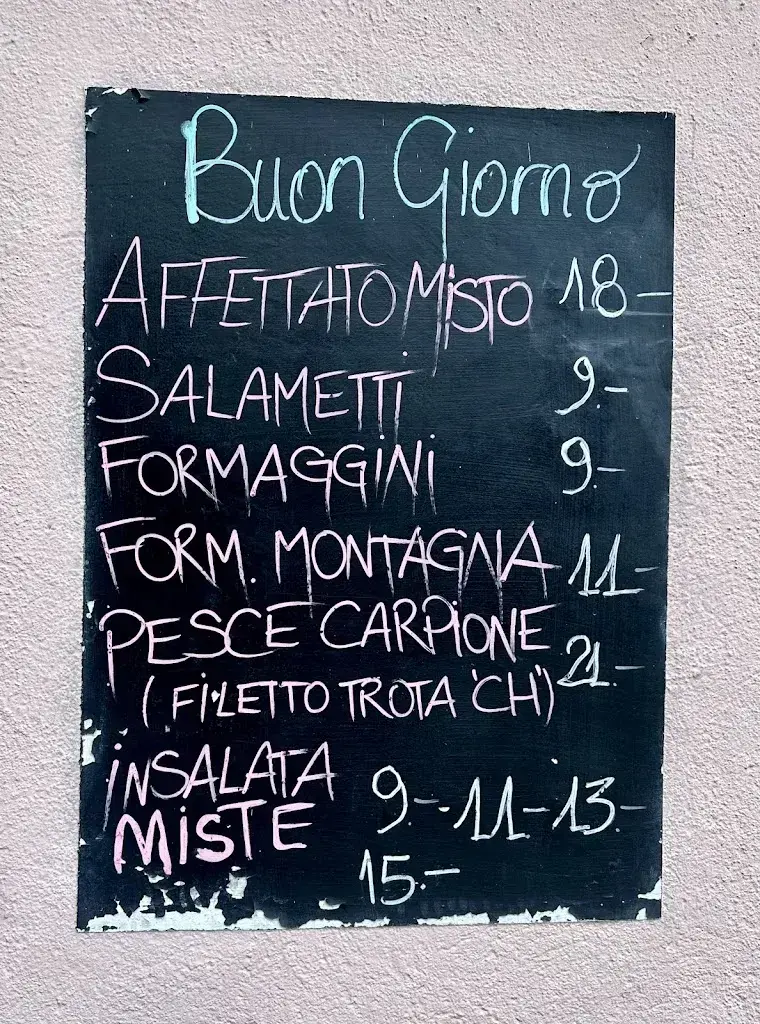 Buon Giorno
AFFETTATO MISTO 18-
SALAMETTI 9.-
FORMAGGINI 9.-
FORM. MONTAGNA 11-
PESCE CARPIONE
(FILETTO TROTA "CH") 21.-
INSALATA
MISTE 9.-11-13.-
15.-